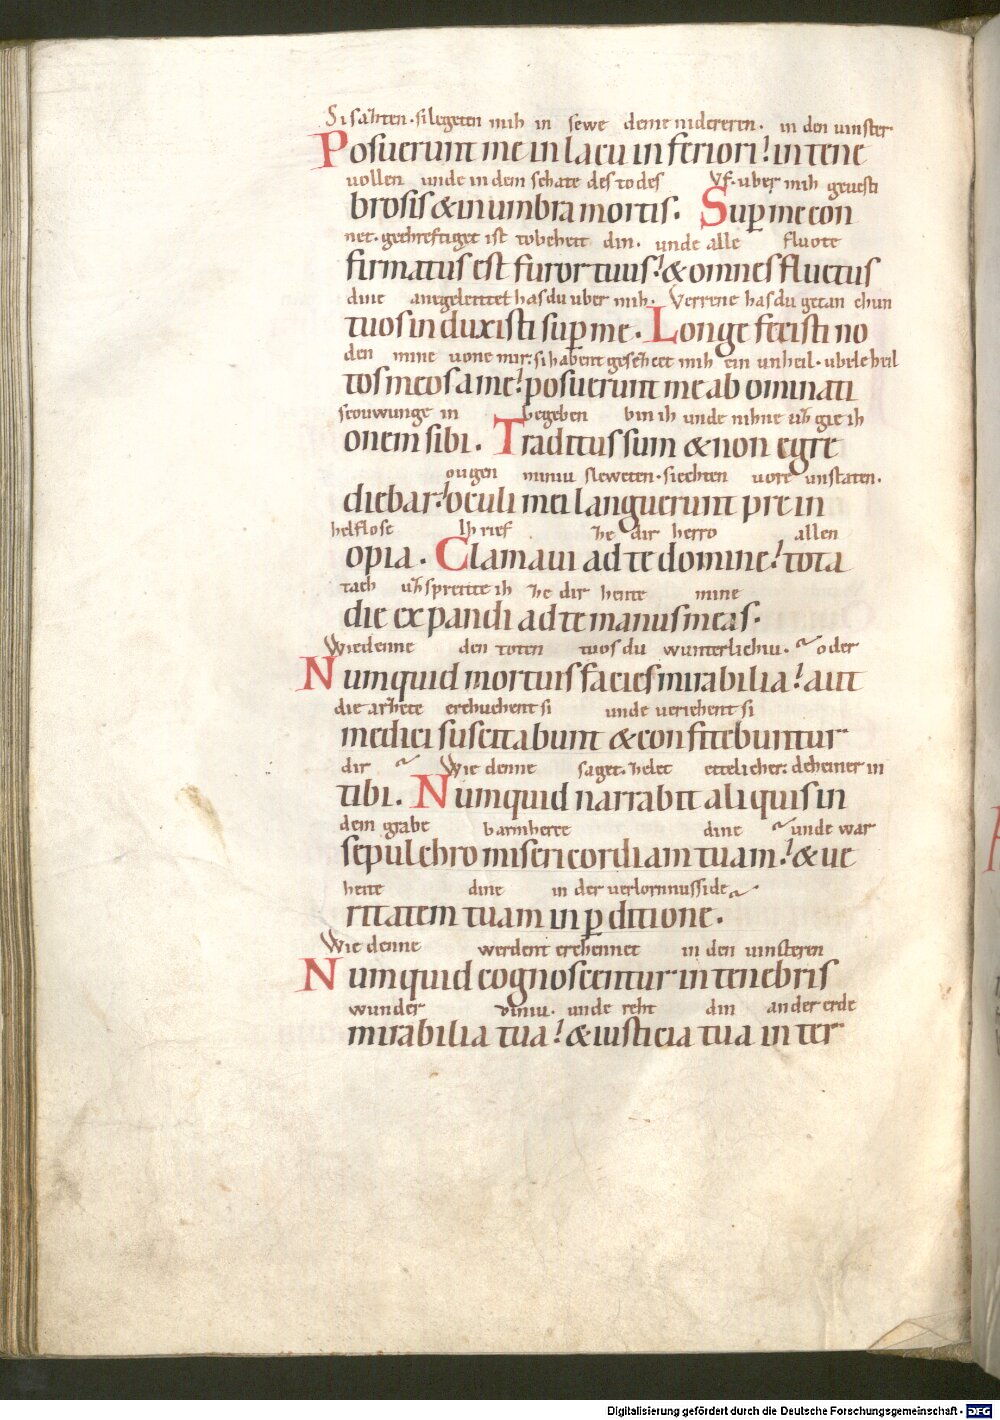 Si sazten·si legeten mih in sewe deme nidereren· in den uinster
Posuerunt me in lacu inferiori! in tene
uollen unde in dem schate des todes Vf·uber mih geuesti
brosis & in umbra mortis. Sup me con
net·gechreftiget ist tobeheit din. unde alle fluote
firmatus est furor tuus! & omnes fluctus
dine anegeleitet hasdu uber mih· Verrene hasdu getan chun
tuos induxisti sup me. Longe fecisti no
den mine uone mir: si habent gesezzet mih ein unheil·ubele heil
tos meos a me! posuerunt me abominati
scouwunge in begeben bin ih unde nihne uz gie ih
onem sibi. Traditus sum & non egre
ougen miniu sleweten·siechten uore unstaten.
diebar! oculi mei languerunt pre in
helflose Ih rief ze dir herro allen
opia. Clamaui ad te domine! tota
tach uzspreitte ih ze dir hente mine
die expandi ad te manus meas.
Wiedenne den toten tuos du wunterlichiu. oder
Numquid mortuis facies mirabilia! aut
die arzete erchuchent si unde ueriehent si
medici suscitabunt & confitebuntur
dir Wie denne saget·zelet ettelicher: deheiner in
tibi. Numquid narrabit aliquis in
dem grabe barmherce dine unde war
sepulchro misericordiam tuam! & ue
heite dine in der uerlornusside
ritatem tuam in pditione.
Wie denne werdent erchennet in den uinsteren
Numquid cognoscentur in tenebris
wunder diniu. unde reht din an der erde
mirabilia tua! & iusticia tua in ter
Digitalisierung gefördert durch die Deutsche Forschungsgemeinschaft - DFG